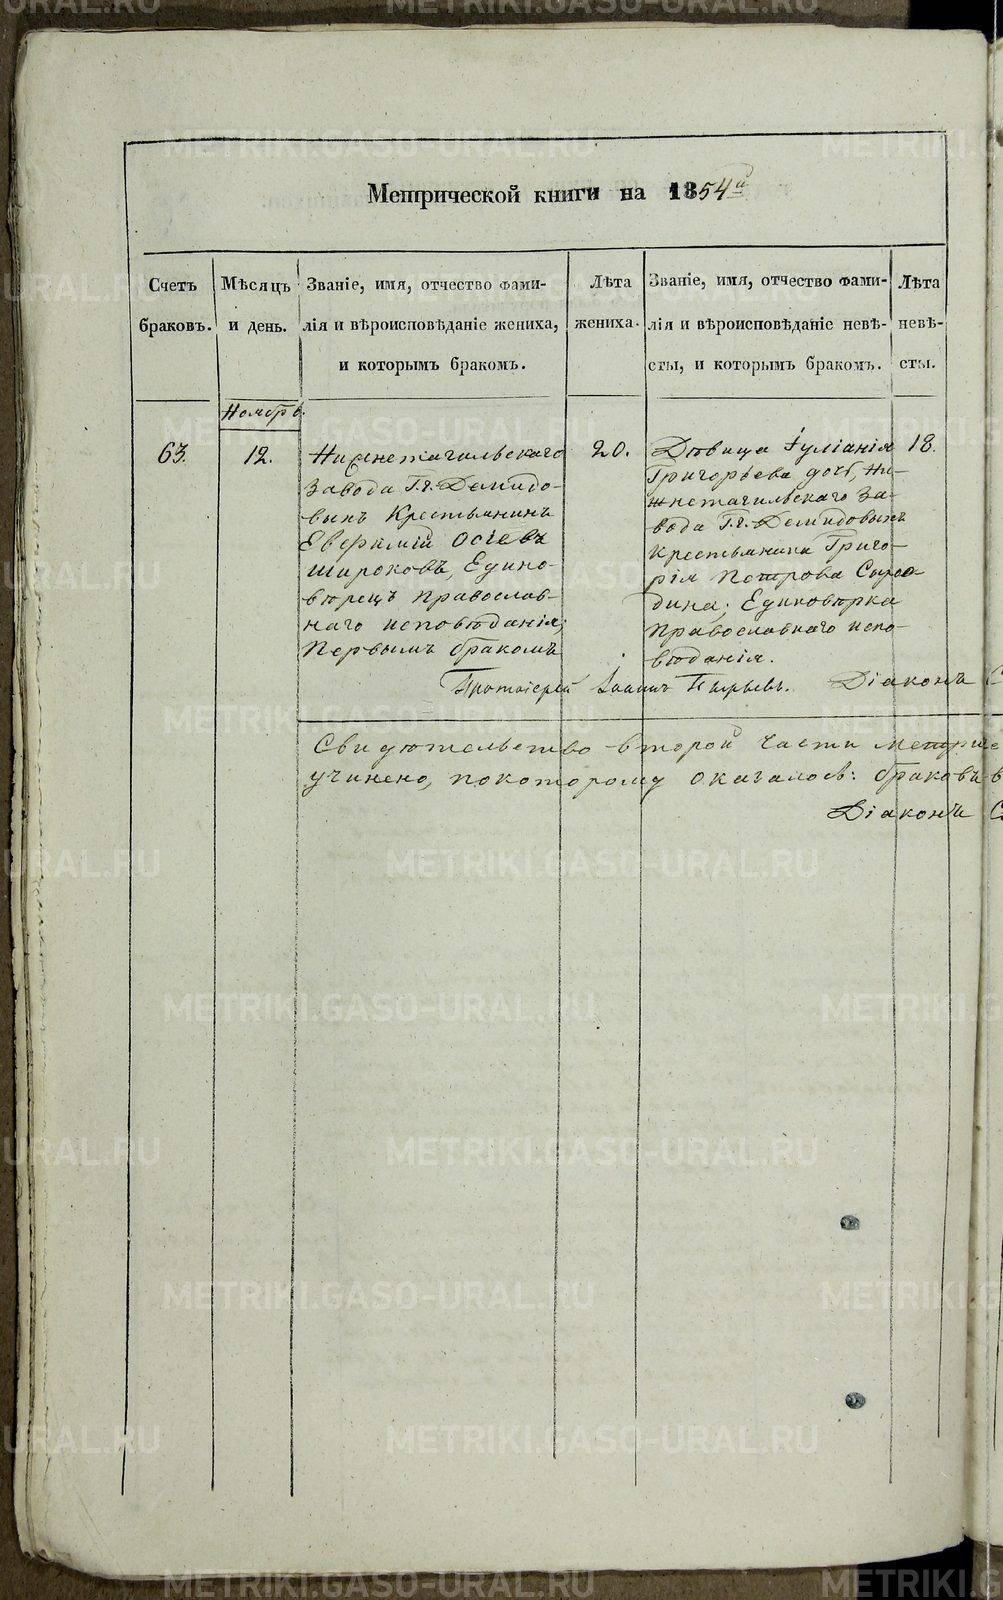 Метрической книги на 1854й
Счетъ браковъ.
Мѣсяцъ и день.
Званіе, имя, отчество фами-
лія и вѣроисповѣданіе жениха,
и которымъ бракомъ.
Лѣта жениха.
Званіе, имя, отчество фами-
лія и вѣроисповѣданіе невѣ-
сты, и которымъ бракомъ.
Лѣта невѣ-
сты.
Ноябрь.
63.
12.
Нижнетагильскаго
завода Г.г. Демидо-
выхъ Крестьянинъ
Евфимій Осіевъ
Широковъ, Едино-
вѣрецъ православ-
наго исповѣданія;
Первымъ бракомъ
20.
Дѣвица Іуліанія
Григорьева дочь, Ни-
жнетагильскаго За-
вода Г.г. Демидовыхъ
Крестьянина Григо-
рія Петрова Сыро-
дина; Единовѣрка
Православнаго испо-
вѣданія.
18.
Протоіерей Іоаннъ Пырьевъ. Діаконъ С
Свидѣтельство второй части метриче
учинено, по которому оказалось: браковъ в
Діаконъ С
METRIKI.GASO-URAL.RU